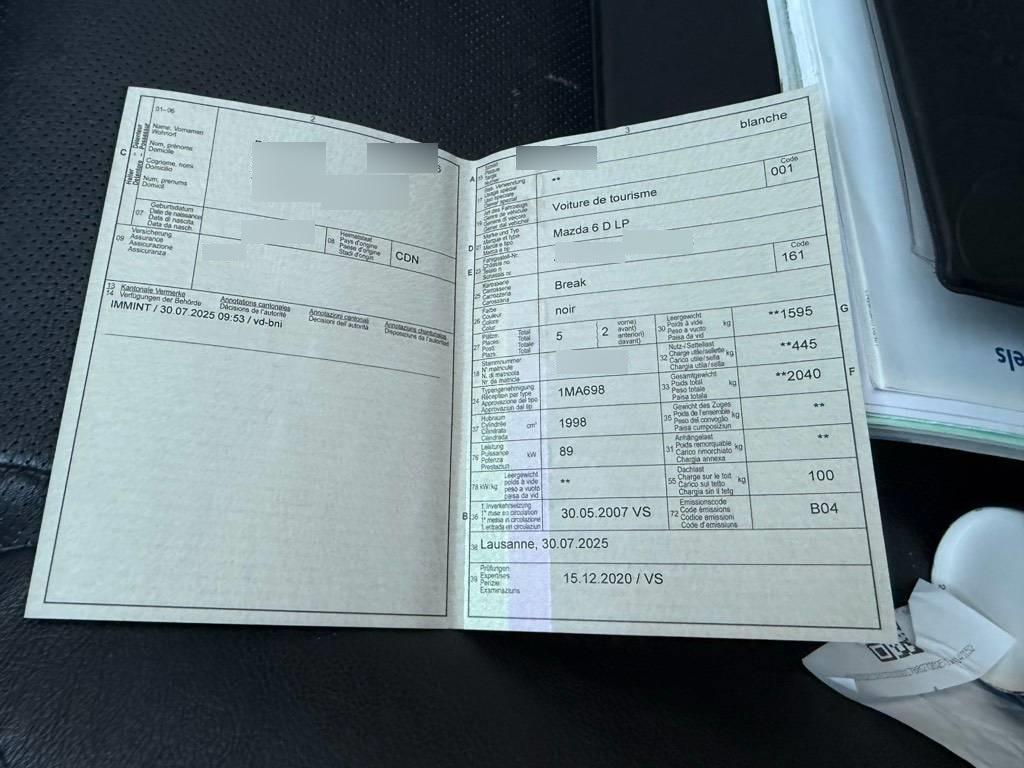 01-06
2
Name, Vornamen
Wohnort
Nom, prénoms
Domicile
Cognome, nomi
Domicilio
Num, prenums
Domicil
C
07
Geburtsdatum
Date de naissance
Data di nascita
Data da nasch.
08
Heimatstaat
Pays d'origine
Paese d'origine
Stadi d'origin
CDN
09
Versicherung
Assurance
Assicurazione
Assicuranza
13
14
Kantonale Vermerke
Verfügungen der Behörde
Annotations cantonales
Décisions de l'autorité
Annotazioni cantonali
Decisioni dell'autorità
Annotaziuns chantunalas
Disposiziuns da l'autoritad
IMMINT / 30.07.2025 09:53 / vd-bni
3
blanche
A
15
17
**
Code
001
19
Art des Fahrzeugs
Genre de véhicule
Genere di veicolo
Gener dal vehichel
Voiture de tourisme
D
21
Marke und Typ
Marque et type
Marca e tipo
Marca e tip
Mazda 6 D LP
E
23
Fahrgestell-Nr.
Châssis no
Telaio n.
Schassis nr.
25
Karosserie
Carrosserie
Carrozzeria
Carossaria
Break
Code
161
26
Farbe
Couleur
Colore
Colur
noir
27
Plätze: Total
Places: Total
Posti: Totale
Plazs: Total
5
2
vorne)
avant)
anteriori)
davant)
30
Leergewicht
Poids à vide
Peso a vuoto
Paisa da vid
kg
**1595
G
18
Stammnummer
N° matricule
N. di matricola
Nr. da matricla
32
Nutz-/Sattellast
Charge utile/sellette
Carico utile/sella
Chargia utila/sella
kg
**445
24
Typengenehmigung
Réception par type
Approvazione del tipo
Approvaziun dal tip
1MA698
33
Gesamtgewicht
Poids total
Peso totale
Paisa totala
kg
**2040
F
37
Hubraum
Cylindrée
Cilindrata
Cilindrada
cm³
1998
35
Gewicht des Zuges
Poids de l'ensemble
Peso del convoglio
Paisa cumposiziun
kg
**
76
Leistung
Puissance
Potenza
Prestaziun
kW
89
31
Anhängelast
Poids remorquable
Carico rimorchiato
Chargia annexa
kg
**
78 kW/kg
Leergewicht
poids à vide
peso a vuoto
paisa da vid
**
55
Dachlast
Charge sur le toit
Carico sul tetto
Chargia sin il tetg
kg
100
B
36
1. Inverkehrsetzung
1re mise en circulation
1a messa in circolazione
1. entrada en circulaziun
30.05.2007 VS
72
Emissionscode
Code émissions
Codice emissioni
Code d'emissiuns
B04
38
Lausanne, 30.07.2025
39
Prüfungen
Expertises
Perizie
Examinaziuns
15.12.2020 / VS